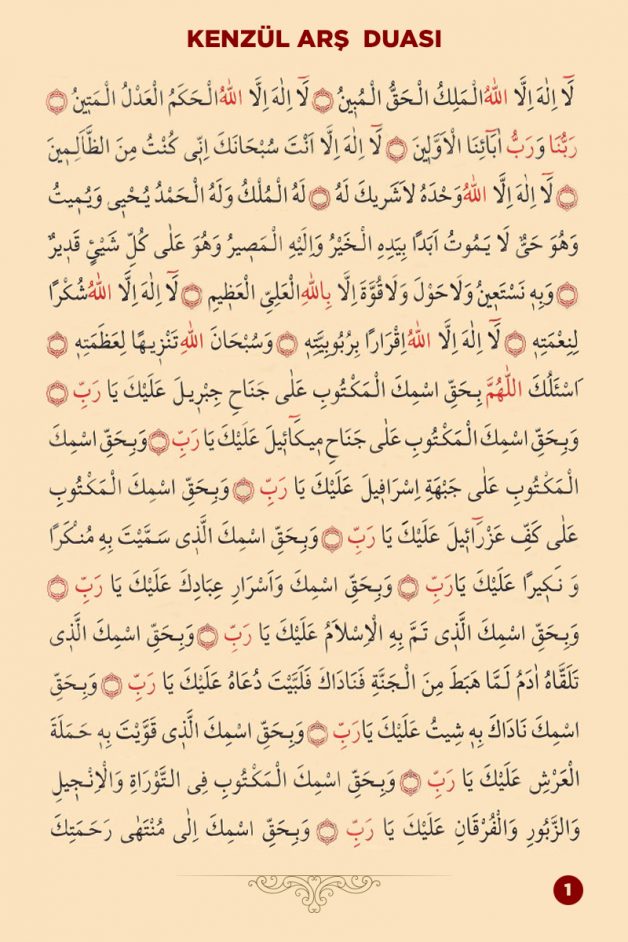 KENZÜL ARŞ DUASI
لَٓا اِلٰهَ اِلَّا اللهُ الْمَلِكُ الْحَقُّ الْمُبٖينُ ۝ لَٓا اِلٰهَ اِلَّا اللهُ الْحَكَمُ الْعَدْلُ الْمَتٖينُ ۝
رَبُّنَا وَرَبُّ اٰبَٓائِنَا الْاَوَّلٖينَ ۝ لَٓا اِلٰهَ اِلَّا اَنْتَ سُبْحَانَكَ اِنّٖى كُنْتُ مِنَ الظَّالِمٖينَ
۝ لَٓا اِلٰهَ اِلَّا اللهُ وَحْدَهُ لَاشَرٖيكَ لَهُ ۝ لَهُ الْمُلْكُ وَلَهُ الْحَمْدُ يُحْيٖى وَيُمٖيتُ
وَهُوَ حَىٌّ لَا يَمُوتُ اَبَدًا بِيَدِهِ الْخَيْرُ وَاِلَيْهِ الْمَصٖيرُ وَهُوَ عَلٰى كُلِّ شَيْئٍ قَدٖيرٌ
۝ وَبِهٖ نَسْتَعٖينُ وَلَاحَوْلَ وَلَاقُوَّةَ اِلَّا بِاللهِ الْعَلِىِّ الْعَظٖيمِ ۝ لَٓا اِلٰهَ اِلَّا اللهُ شُكْرًا
لِنِعْمَتِهٖ ۝ لَٓا اِلٰهَ اِلَّا اللهُ اِقْرَارًا بِرُبُوبِيَّتِهٖ ۝ وَسُبْحَانَ اللهِ تَنْزٖيهًا لِعَظَمَتِهٖ ۝
اَسْئَلُكَ اللّٰهُمَّ بِحَقِّ اسْمِكَ الْمَكْتُوبِ عَلٰى جَنَاحِ جِبْرٖيلَ عَلَيْكَ يَا رَبِّ ۝
وَبِحَقِّ اسْمِكَ الْمَكْتُوبِ عَلٰى جَنَاحِ مٖيكَٓائٖيلَ عَلَيْكَ يَا رَبِّ ۝ وَبِحَقِّ اسْمِكَ
الْمَكْتُوبِ عَلٰى جَبْهَةِ اِسْرَافٖيلَ عَلَيْكَ يَا رَبِّ ۝ وَبِحَقِّ اسْمِكَ الْمَكْتُوبِ
عَلٰى كَفِّ عَزْرَٓائٖيلَ عَلَيْكَ يَا رَبِّ ۝ وَبِحَقِّ اسْمِكَ الَّذٖى سَمَّيْتَ بِهٖ مُنْكَرًا
وَ نَكٖيرًا عَلَيْكَ يَارَبِّ ۝ وَبِحَقِّ اسْمِكَ وَاَسْرَارِ عِبَادِكَ عَلَيْكَ يَا رَبِّ ۝
وَبِحَقِّ اسْمِكَ الَّذٖى تَمَّ بِهِ الْاِسْلَامُ عَلَيْكَ يَا رَبِّ ۝ وَبِحَقِّ اسْمِكَ الَّذٖى
تَلَقَّاهُ اٰدَمُ لَمَّا هَبَطَ مِنَ الْجَنَّةِ فَنَادَاكَ فَلَبَّيْتَ دُعَاهُ عَلَيْكَ يَا رَبِّ ۝ وَبِحَقِّ
اسْمِكَ نَادَاكَ بِهٖ شِيتُ عَلَيْكَ يَارَبِّ ۝ وَبِحَقِّ اسْمِكَ الَّذٖى قَوَّيْتَ بِهٖ حَمَلَةَ
الْعَرْشِ عَلَيْكَ يَا رَبِّ ۝ وَبِحَقِّ اسْمِكَ الْمَكْتُوبِ فِى التَّوْرَاةِ وَالْاِنْجٖيلِ
وَالزَّبُورِ وَالْفُرْقَانِ عَلَيْكَ يَا رَبِّ ۝ وَبِحَقِّ اسْمِكَ اِلٰى مُنْتَهٰى رَحَمَتِكَ
1